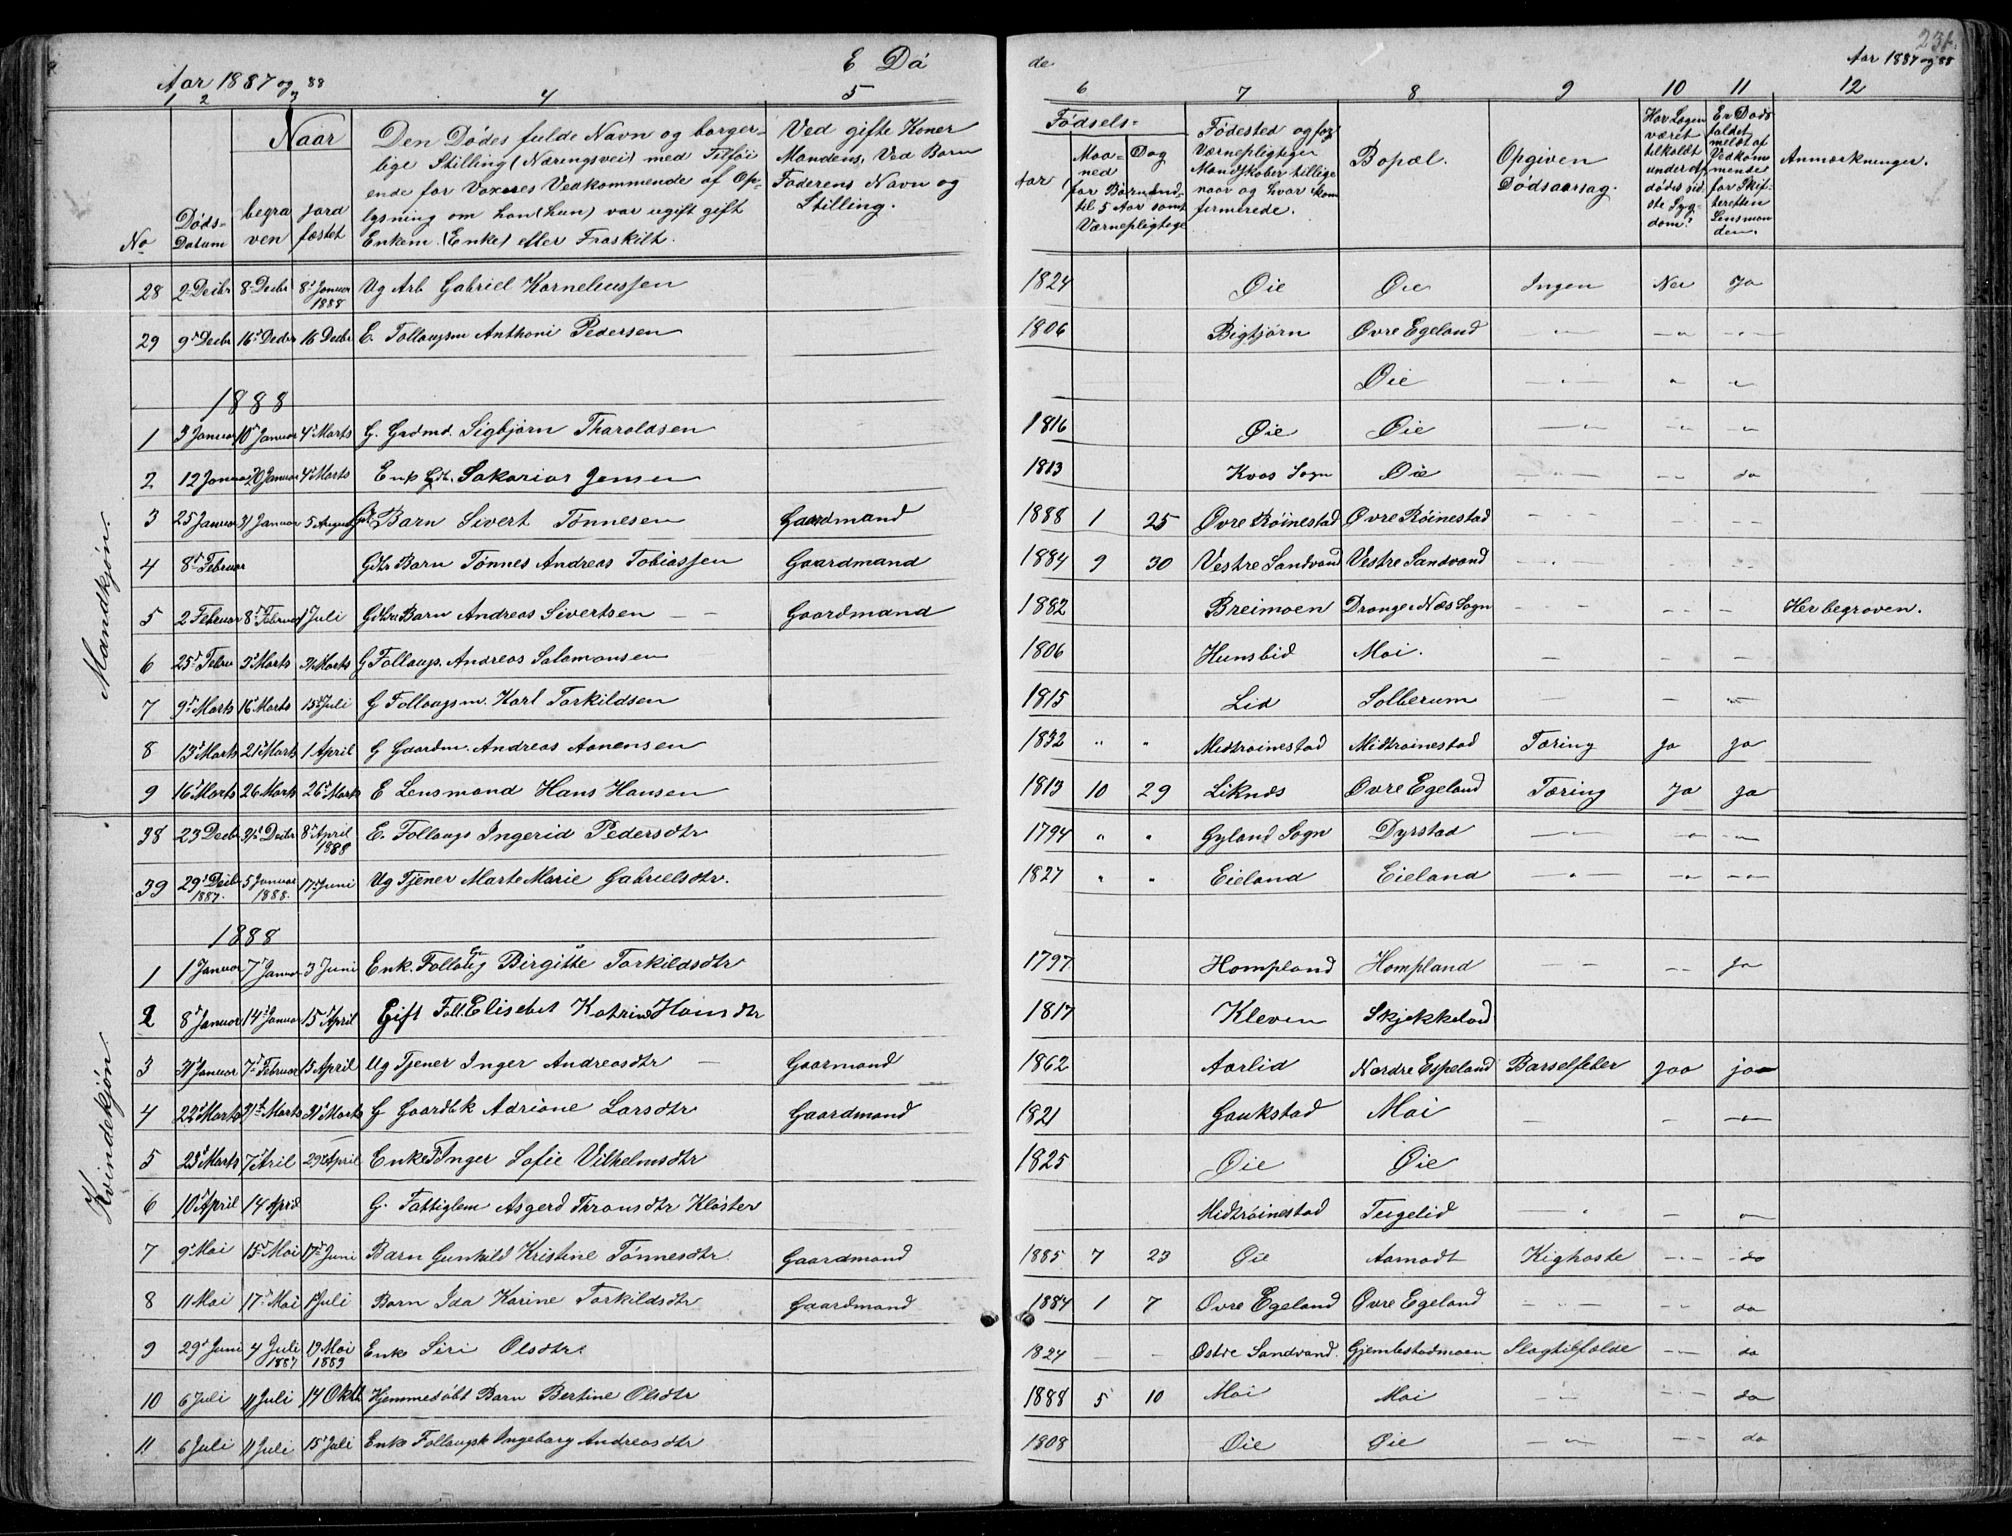 231.
Aar 1887 og 88 E Dö
de Aar 1887 og 88
1 2 3 4 5
6 7 8 9 10 11 12
No
Döds-
Datum
Naar
begra
ven
jord
fæstet
Den Dödes fulde Navn og borger-
lige Stilling (Næringsvei) med Tilföi
ende for Voxnes Vedkommende af Op-
lysning om han (hun) var ugift gift
Enkem. (Enke) eller Fraskilt.
Ved gifte Koner
Mandens, Ved Barn
Faderens Navn og
Stilling.
Födsels-
Aar
Maa-
ned
Dag
for Börn ind-
til 5 Aar samt
Værnepligtige
Födested og for
Værnepligtige
Mandskaber tillige
naar og hvor kon
firmerede.
Bopæl.
Opgiven
Dödsaarsag.
Har Lægen
været
tilkaldt
under Af
dödes sid
ste Syg-
dom?
Er Döds
faldet
meldt af
Vedkom
mende
for Skif
teretten
Lensman
den.
Anmærkninger.
Mandkjön.
28 2 Decbr 8 Decbr 8 Januar 1888 Ug Arb Gabriel Korneliussen 1824 Öie Öie Ingen Nei Ja
29 9 Decbr 16 Decbr 16 Decbr E. Follaugsm Anthoni Pedersen 1806 Bigtjörn Övre Egeland — " — — " — "
Öie — " — " "
1888
1 3 Januar 10 Januar 4 Marts G. Grdmd. Sigbjörn Tharaldsen 1816 Öie Öie — " — — " "
2 12 Januar 20 Januar 4 Marts Enk Sakarias Jensen 1813 Kvas Sogn Öie — " — — " do
3 25 Januar 31 Januar 5 August Barn Sivert Tönnesen Gaardmand 1888 1 25 Övre Röinestad Övre Röinestad
4 8 Februar Gdbr Barn Tönnes Andreas Tobiassen Gaardmand 1884 9 30 Vestre Sandvand Vestre Sandvand
5 2 Februar 8 Februar 1 Juli Gdbr Barn Andreas Sivertsen — Gaardmand 1882 Breimoen Drange i Næs Sogn Her begraven.
6 25 Febru 3 Marts 31 Marts G Follaugs. Andreas Salamonsen 1806 Hunsbid Moi.
7 9 Marts 16 Marts 15 Juli G Follaugsm. Karl Torkildsen 1815 Lid Solberum
8 13 Marts 21 Marts 1 April G Gaardm. Andreas Aanensen 1832 " " Midtröinestad Midtröinestad Tæring Ja Ja
9 16 Marts 26 Marts 26 Marts E Lensmand Hans Hansen 1813 10 29 Liknes Övre Egeland Tæring Ja Ja
Kvindekjön.
38 23 Decbr 31 Decbr 8 April 1888 E. Follaugs Ingerid Pedersdtr 1794 " " Gyland Sogn Dyrstad — " — — " — — " —
39 29 Decbr 1887. 5 Januar 1888. 17 Juni Ug Tjener Marte Marie Gabrielsdtr. 1827 " " Eieland Eieland — " — — " — — " —
1888
1 1 Januar 7 Januar 3 Juni Enk. Follaug Birgitte Torkildsdtr 1797 Hompland Hompland — — Ja
2 8 Januar 14 Januar 15 April Gift Foll. Elisebet Katrine Hansdtr 1817 Kleven Skjekkeland
3 31 Januar 7 Februar 15 April Ug Tjener Inger Andreasdtr — Gaarmand 1862 Aarlid Nordre Espeland Barselfeber Jaa ja
4 22 Marts 31 Marts 31 Marts G Gaardbk Adriane Larsdtr Gaardmand 1821 Gaukstad Moi
5 23 Marts 7 Aril 29 April Enke F Inger Sofie Vilhelmsdtr 1825 Öie Öie
6 10 April 14 April G. Fattiglem Asgerd Thronsdtr Klöster Midtröinestad Teigelid
7 9 Mai 15 Mai 17 Juni Barn Gunhild Kristine Tönnesdtr Gaardmand 1885 7 23 Öie Aamodt Kighoste — " — do
8 11 Mai 17 Mai 1 Juli Barn Ida Karine Torkildsdtr Gaardmand 1884 1 7 Övre Egeland Övre Egeland — " — do
9 29 Juni 4 Juli 1887 19 Mai 1889 Enke Siri Olsdtr. 1824 — — Östre Sandvand. Gjembestadmoen Slagtilfælde — — do
10 6 Juli 11 Juli 14 Oktb Hjemmedöbt Barn Bertine Olsdtr 1888 5 10 Moi Moi — " — do
11 6 Juli 11 Juli 15 Juli Enke Follaugsk Ingeborg Andreasdtr 1808 Öie Öie — " — do